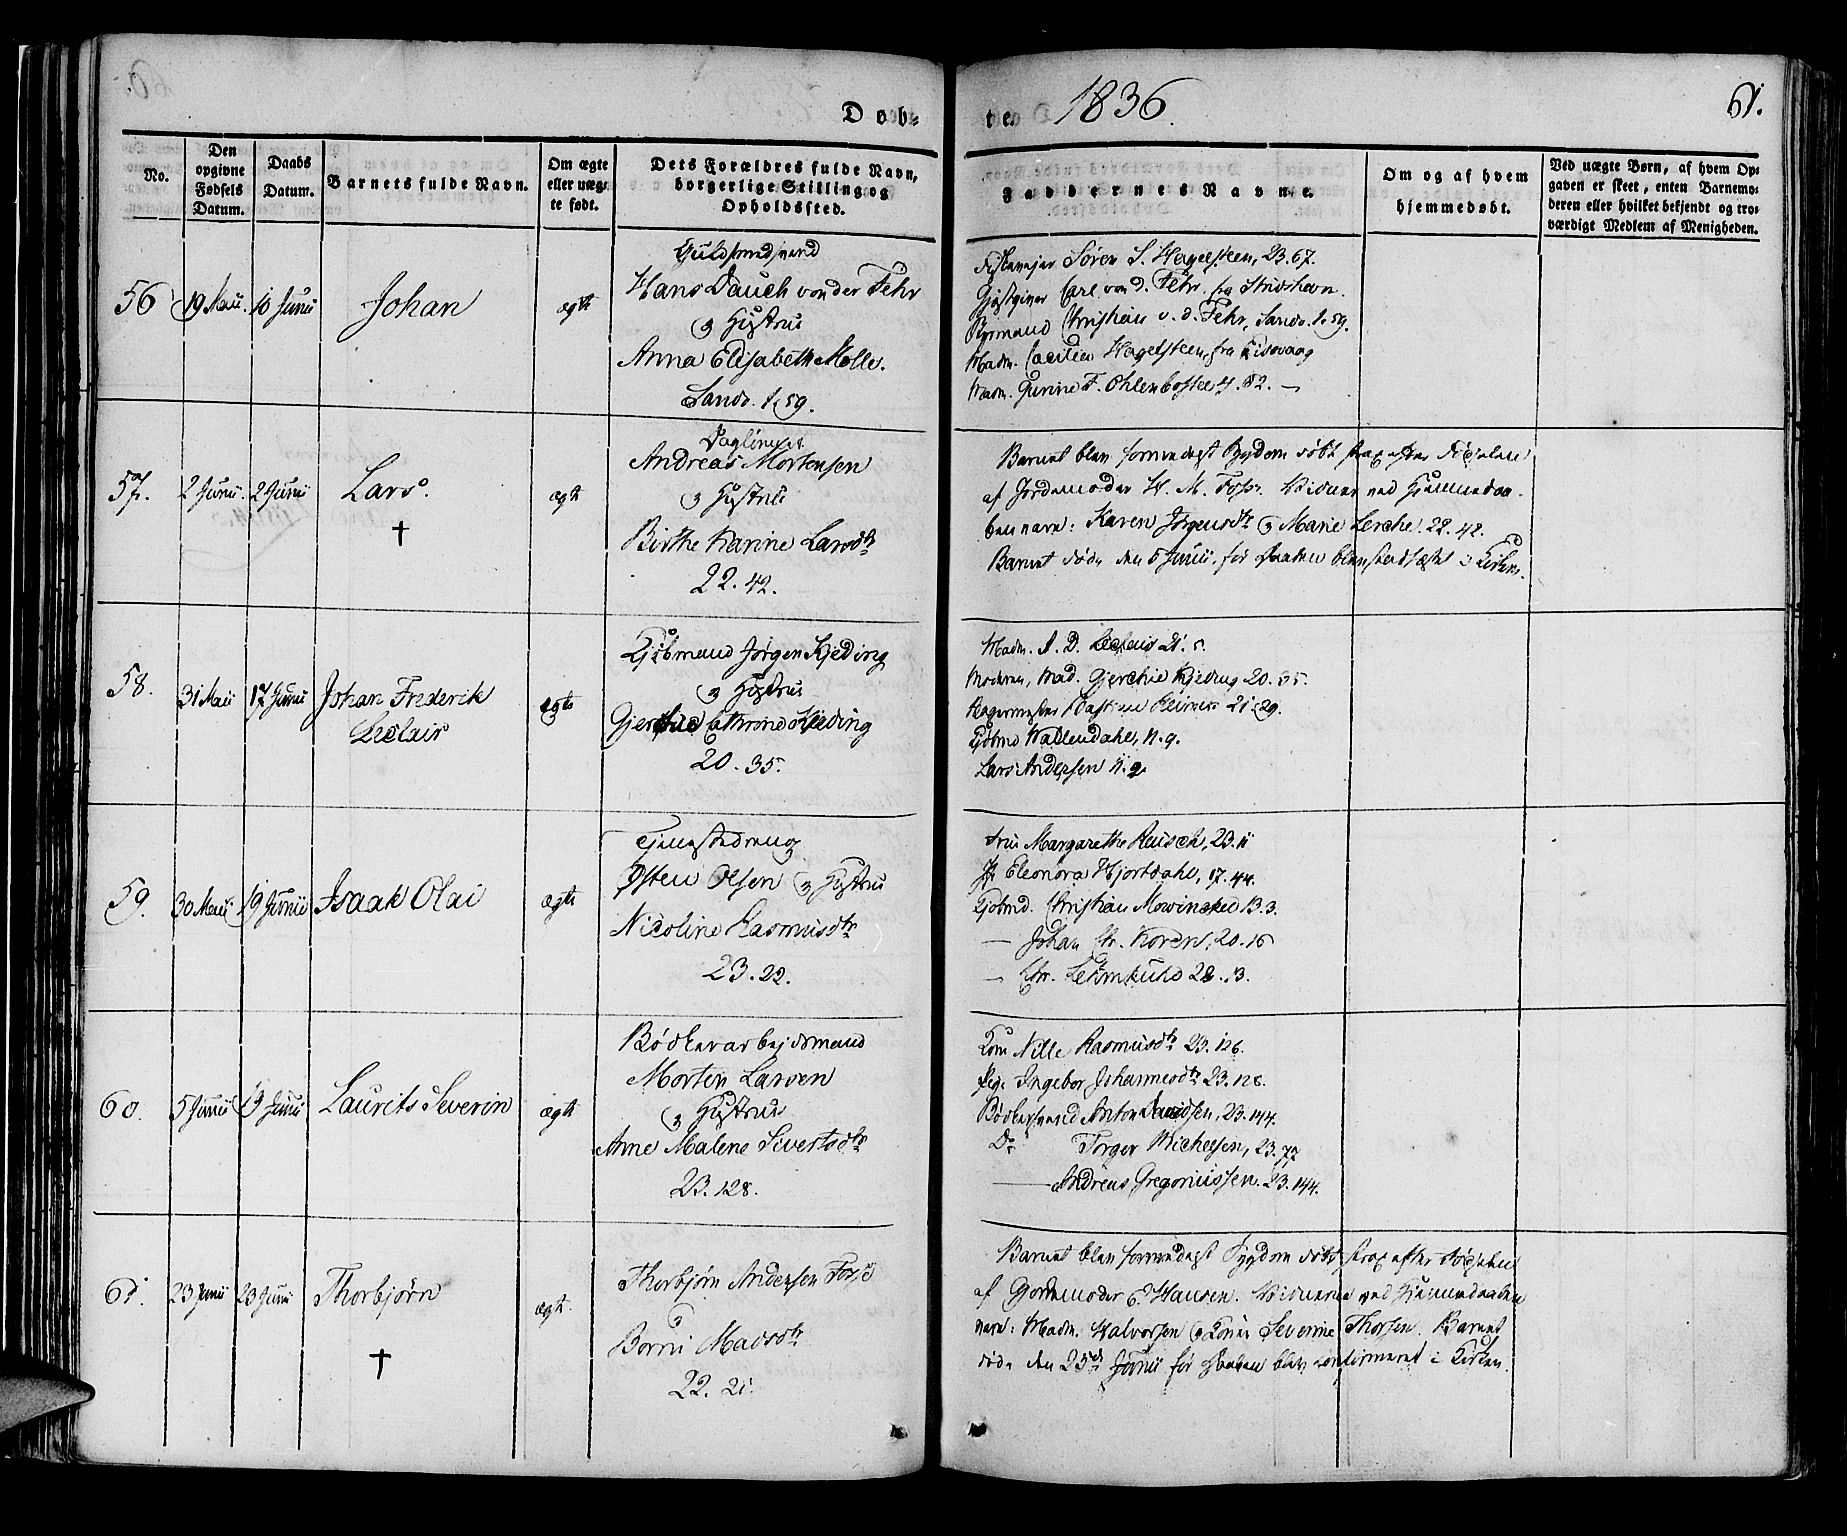 Døb-
te 1836.
61.
No.
Den opgivne Fødsels Datum.
Daabs Datum.
Barnets fulde Navn.
Om ægte eller uægte født.
Dets Forældres fulde Navn, borgerlige Stilling og Opholdssted.
Faddernes Navne.
Om og af hvem hjemmedøbt.
Ved uægte Børn, af hvem Opgaven er skeet, enten Barnemoderen eller hvilket bekjendt og troværdigt Medlem af Menigheden.
56
19 Maii.
10 Junii
Johan
ægte
Guldsmedsvend
Hans Dauch von der Fehr
og Hustrue
Anna Elisabeth Molle.
Sands. 1.59.
Søren S. Hagelsteen, 23.67.
Gjæstgiver Carl von d. Fehr
Christian v. d. Fehr, Sands. 1.59.
Madm. Hagelsteen, fra
Madm. Gurine F. 4. 52. —
57.
2 Junii.
2 Junii
Lars.
†
ægte
Andreas Mortensen
og Hustrue
Birthe Karine Larsdtr
22. 42.
Barnet blev formedelst Sygdom døbt strax efter Fødselen
af Jordemoder H. M. Foss. Vidner ved Hjemmedaa-
ben vare: Karen Jørgensdtr og Marie Lerche. 22. 42.
Barnet døde den 5 Junii, før Daaben blev stadfæstet i Kirken.
58.
31 Maii
17 Junii
Johan Frederik
Leclair
ægte
Kjøbmand Jørgen Kjeding
og Hustrue
Cathrine Kjeding
20. 35.
Madm. 21. 5.
Moderen, Mad. Kjeding 20. 35.
21. 29.
Kjøbmd Wallendahl, 11. 9.
Lars Andersen 11. 9.
59.
30 Maii
19 Junii
Isaak Olai
ægte
Tjenestedreng
Østen Olsen og Hustrue
Nicoline Rasmusdtr
23. 22.
Frue Margarethe Reusch, 23. 11
Jfr Eleonora Hjortdahl, 17. 44.
Kjøbmd. Christian Mowinckel 13. 3.
— Johan Chr. Koren, 20. 16
— Chr. Lehmkuhl 22. 13.
60.
5 Junii
19 Junii
Laurits Severin
ægte
Bødkerarbejdsmand
Morten Larsen
og Hustrue
Anne Malene Sivertsdtr
23. 128.
Kone Nille Rasmusdtr 23. 126.
Pige Ingebor Johannesdtr 23. 128.
Bødkersvend Anton Davidsen, 23. 144.
Do Torger Michelsen, 23. 77
— Andreas Gregoriussen. 23. 144.
61.
23 Junii
23 Junii
Thorbjørn
†
ægte.
Thorbjørn Andersen
og
Borni Madsdtr
22. 21.
Barnet blev formedelst Sygdom døbt strax efter Fødselen
af Gjordemoder C. Hansen. Vidnerne ved Hjemmedaaben
vare: Madm. Halvorsen og Konen Severine Thorsen. Barnet
døde den 25de Junii før Daaben blev confirmeret i Kirken.